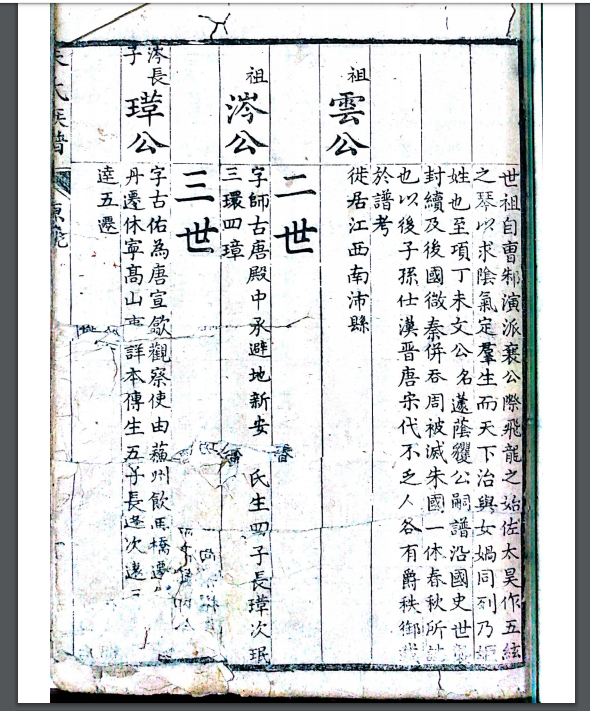 世祖自曹邾演派襄公際飛龍之始佐太昊作五絃
之琴以求陰氣定羣生而天下治與女媧同列乃
姓也至項丁未文公名蘧蔭公嗣譜沿國史世
封續及後國微秦併吞周被滅朱國一休春秋所
也以後子孫仕漢晉唐宋代不乏人各有爵秩御
於譜考
祖
雲公
徙居江西南沛縣
二世
祖
涔公
字師古唐殿中丞避地新安 氏生四子長璋次珉
三環四璋
三世
涔長子
璋公
字古佑為唐宣歙觀察使由蘓州飲馬橋遷
丹遷休寧髙山 詳本傳生五子長逵次遠三
達五遷
氏族譜